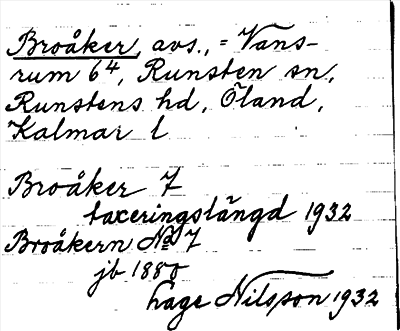 Broåker, avs., = Vans-
rum 6⁴, Runsten sn,
Runstens hd, Öland,
Kalmar l
Broåker 7
taxeringslängd 1932
Broåkern No 7
jb 1880
Hage Nilsson 1932